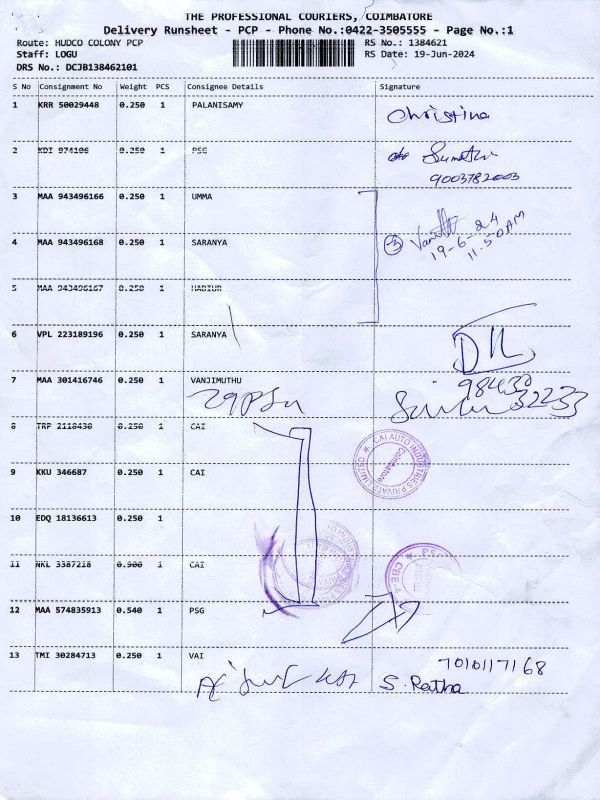 THE PROFESSIONAL COURIERS, COIMBATORE
Delivery Runsheet - PCP - Phone No.:0422-3505555 - Page No.:1
Route: HUDCO COLONY PCP RS No.: 1384621
Staff: LOGU RS Date: 19-Jun-2024
DRS No.: DCJB138462101
S No Consignment No Weight PCS Consignee Details Signature
1 KRR 50029448 0.250 1 PALANISAMY
Christina
2 KDI 974106 0.250 1 PSG
9003782003
3 MAA 943496166 0.250 1 UMMA
19-6-24
11.50AM
4 MAA 943496168 0.250 1 SARANYA
3
5 MAA 943496167 0.250 1
6 VPL 223189196 0.250 1 SARANYA
7 MAA 301416746 0.250 1 VANJIMUTHU
98430
32233
8 TRP 2118438 0.250 1 CAI
CAI AUTO INDUSTRIES PRIVATE LIMITED
Coimbatore
9 KKU 346687 0.250 1 CAI
10 EDQ 18136613 0.250 1
11 NKL 3387218 0.900 1 CAI
12 MAA 574835913 0.540 1 PSG
13 TMI 30284713 0.250 1 VAI
7010117168
S. Ratha